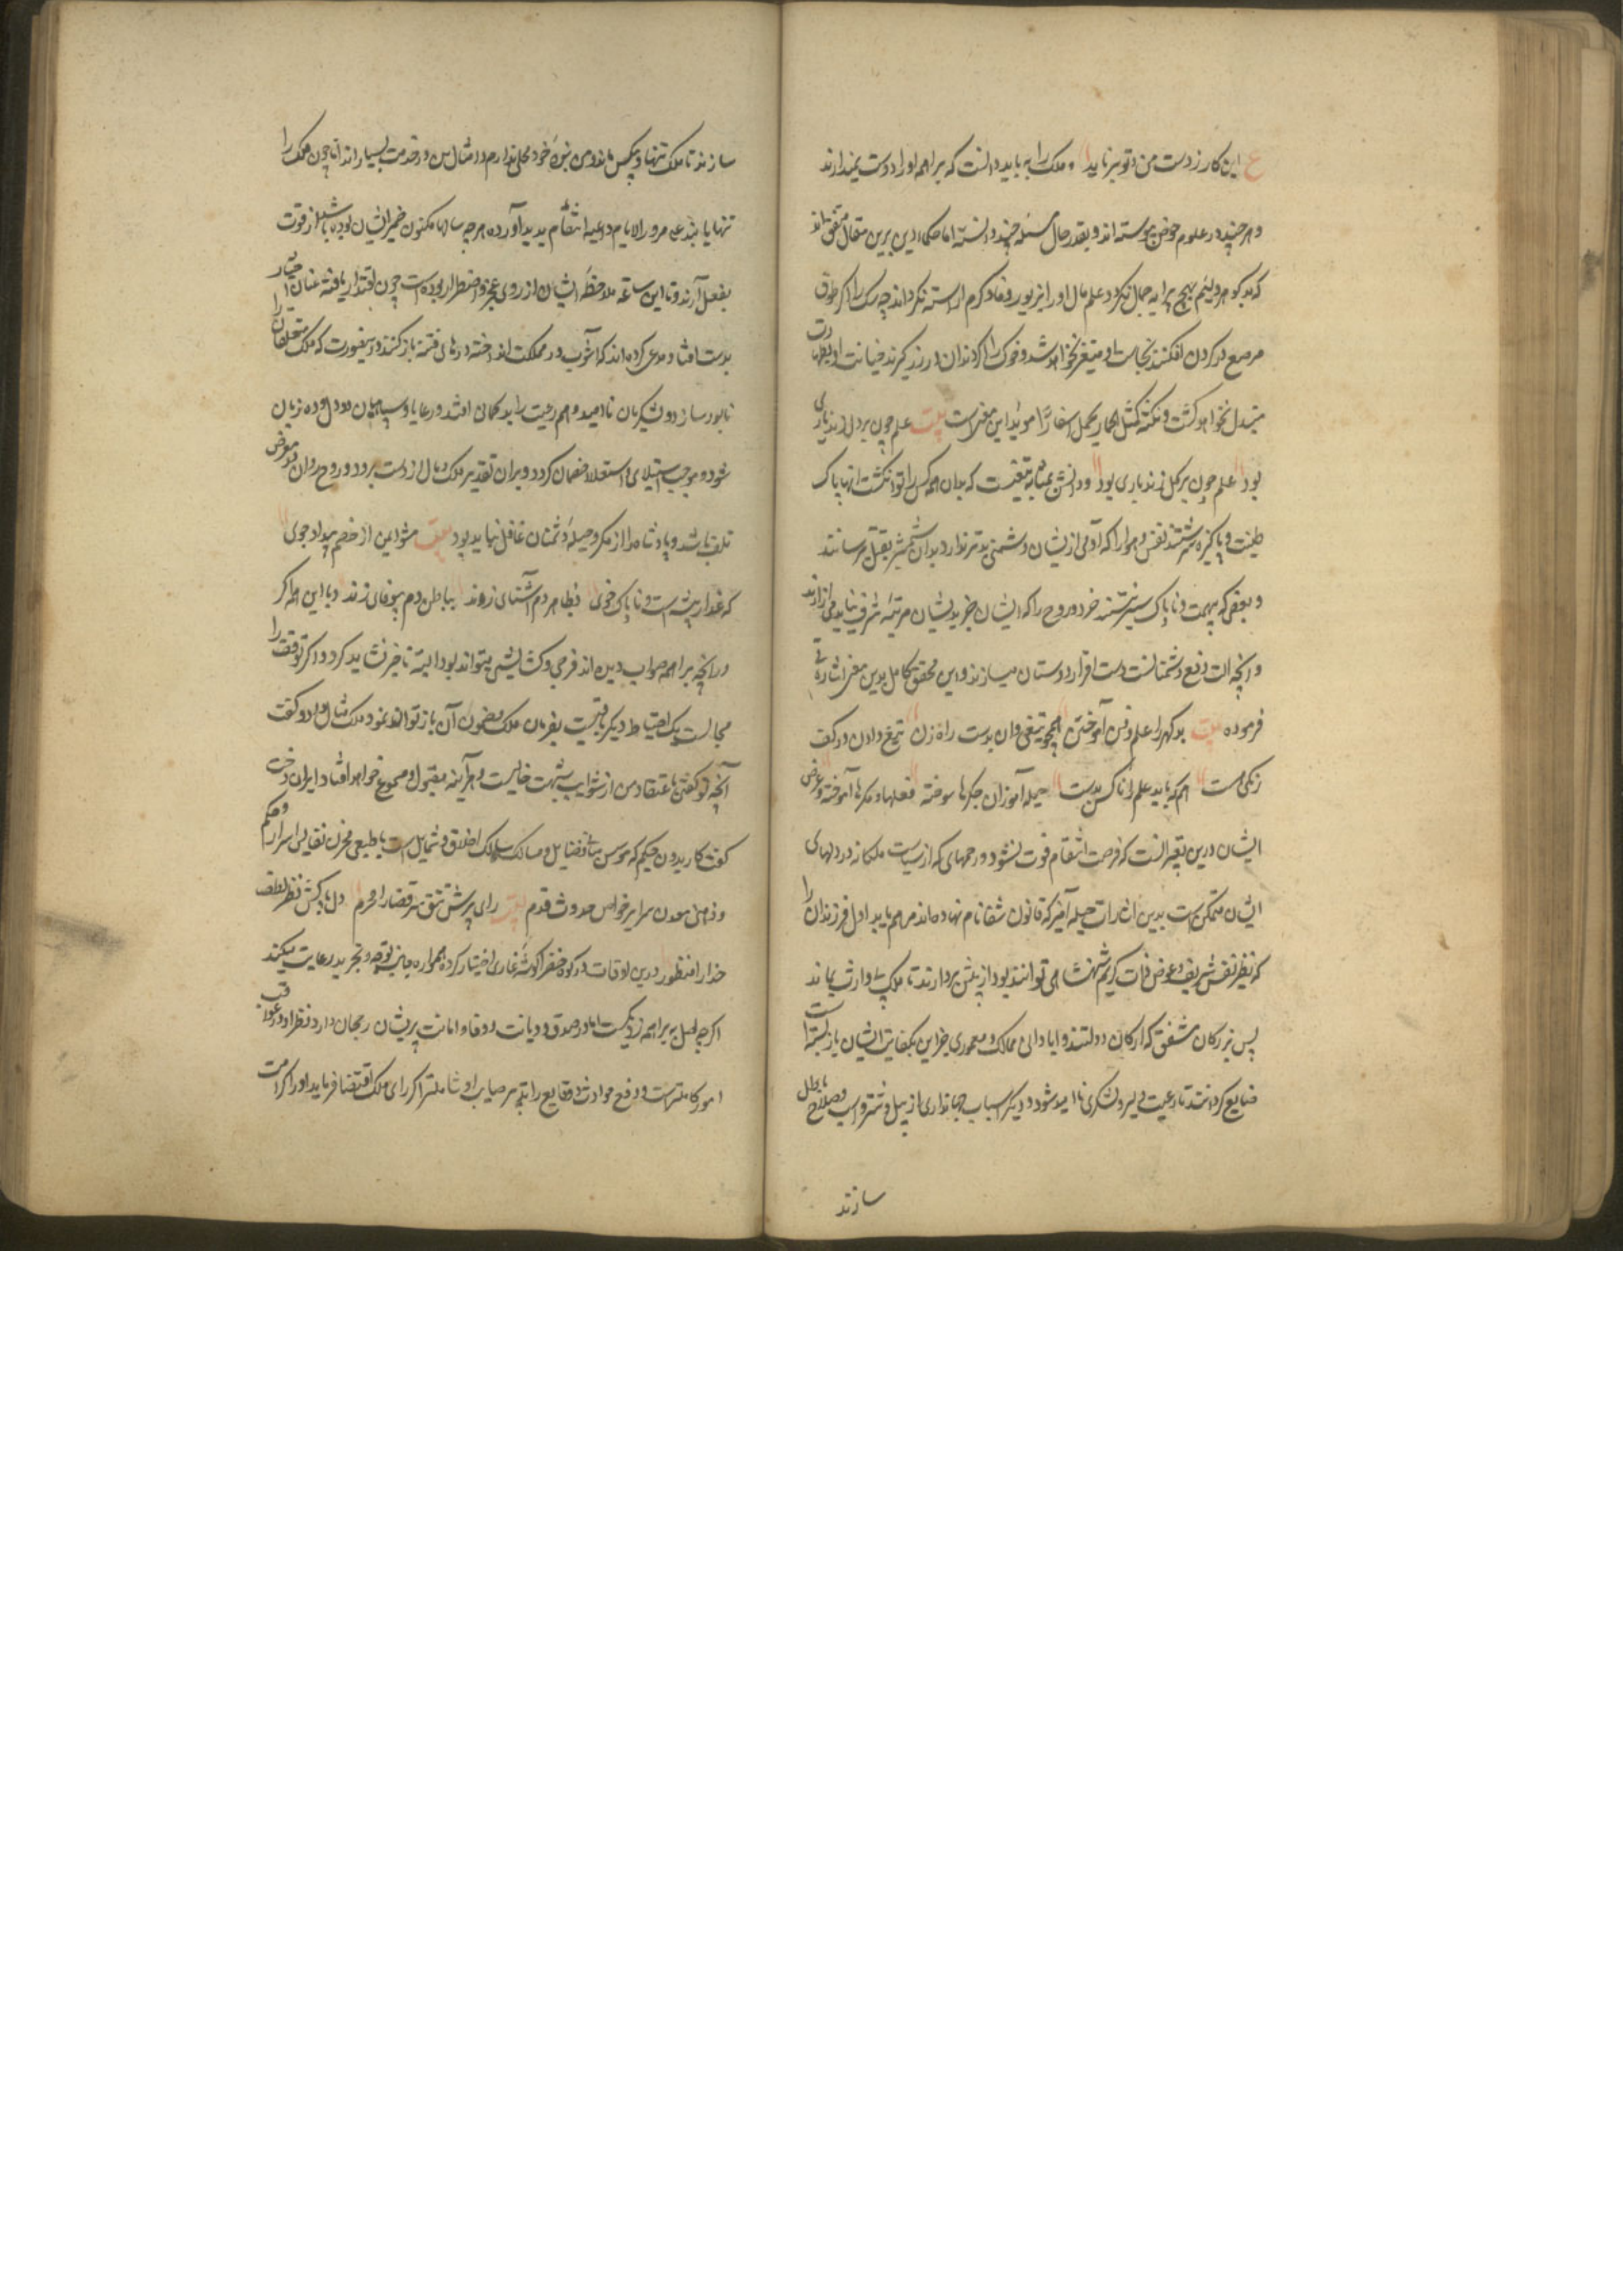 ع این کار ز دست من و تو بر ناید و ملک را به باید دانست که براهمه او را دوست نمیدارند
و هر چند در علوم خوض پیوسته اند و بقدر حال مسئله چند دانسته اما حکماء دین برین مقال متفق اند
که بدگوهر و لئیم بهیچ پیرایه جمال نگیرد و علم مال او را بزیور وفا و کرم آراسته نگرداند چه سک را اگر طوق
مرصع در کردن افکنند نجاست او متغیر نخواهد شد و خوک را اگر دندان در زر گیرند خیانت او بطهارت
مبدل نخواهد کشت و نکته کمثل الحمار یحمل اسفارًا موید این معنی است بیت علم چون بر دل زند یاری
بود علم چون بر کل زند باری بود و دانش بمثابه تیغیست که بدان همه کس را توان کشت انها پاک
طینت و پاکیزه سرشتند نفس و هوا را که آدمی از ایشان دشمنی بدتر ندارد بدان شمشیر بقتل میرسانند
و بعضی که بهمت و ناپاک سیرتند خرد و روح را که ایشان جز بدیشان مرتبه شرف نیابد می ازارند
و انچه الت دفع دشمنانست دست افزار دوستان میسازند و این محقق کامل بدین معنی اشارتی
فرموده بیت بدگهر را علم و فن آموختن همچو تیغی دان بدست راه زن تیغ دادن در کف
زنکی مست به که باید علم را ناکس بدست حیله آموزان جکرها سوخته فعلها و مکرها آموخته و غرض
ایشان درین تعبیر انست که فرصت انتقام فوت نشود و زخمهای که از سیاست ملکانه در دلهای
ایشان متمکن است بدین اشارات حیله آمیز که قانون شفا نام نهاده اند مرهم یابد اول فرزندان را
که نظیر نفس شریف و عوض ذات کریم شهنشاهی توانند بود از پیش بردارند تا ملک بی وارث بماند
پس بزرکان مشفق که ارکان دولتند و ابادانی ممالک و معموری خزاین بکفایت ایشان بازبسته است
ضایع کردانند تا رعیت دلیر و لشکری نا امید شود و دیکر اسباب جهانداری از پیل و شتر و اسب و صلاح باطل
سازند
سازند تا ملک تنها و بیکس ماند و من بنده خود محلی ندارم و امثال من در خدمت بسیار اند اما چون ملک را
تنها یابند علی مرور الایام داعیه انتقام پدید آورده هر چه سالها مکنون ضمیر ایشان بوده باشد از قوت
بفعل آرند و تا این ساعه ملاحظه ایشان از روی عجز و اضطرار بوده است چون اقتدار یافته عنان اختیار
بدست افتاد و مدعی کرده اند که آشوب در مملکت انداخته درهای فتنه باز کنند در ینصورت که ملک متعلقان را
نابود سازد و لشکریان ناامید و هم رعیت را بدکمانی افتد و رعایا و سپاهیان دو دل و ده زبان
شود و موجب استیلای و استعلاء خصمان کردد و بران تقدیر ملک و مال از دست برود و روح روان در معرض
تلف باشد و پادشاه را از مکر و حیله دشمنان غافل نباید بود بیت مشو ایمن از خصم بیدادجوی
که غدار پیشه است و ناپاک خوی بظاهر دم آشنای زند بباطن دم بیوفای زند و با این همه اکر
در انچه براهمه صواب دیده اند فرجی و کشایشی میتواند بود البته تاخیر نشاید کرد و اکر توقف را
مجالست یک احتیاط دیکر باقیست بفرمان ملک مضمون آن باز توان نمود ملک مثال داد و کفت
آنچه تو کفتی باعتقاد من از شوایب شبهت خالیست و هرآینه مقبول و مسموع خواهد افتاد ایران دخت
کفت کارایدون حکیم که موسس مبانی فضایل و مسالک سالک اخلاق و شمایل است با طبعی مخزن نفایس اسرار و حکم
و ذهنی معدن سرایر خواص حدوث و قدم بیت رای پیرش تتق سر قضا را محرم دل پاکش نظر لطف
خدا را منظور درین اوقات در کوه خضرا کوشه غاری اختیار کرده همواره جانب توجه و تجرید رعایت میکند
اکرچه باصل به براهمه نزدیکست اما در صدق و دیانت و وفاء و امانت بریشان رجحان دارد و نظر او در عواقب
امور کاملتر است و دفع حوادث و وقایع را تدبیر صایب او شاملتر اکر رای ملک اقتضا فرماید او را کرامت